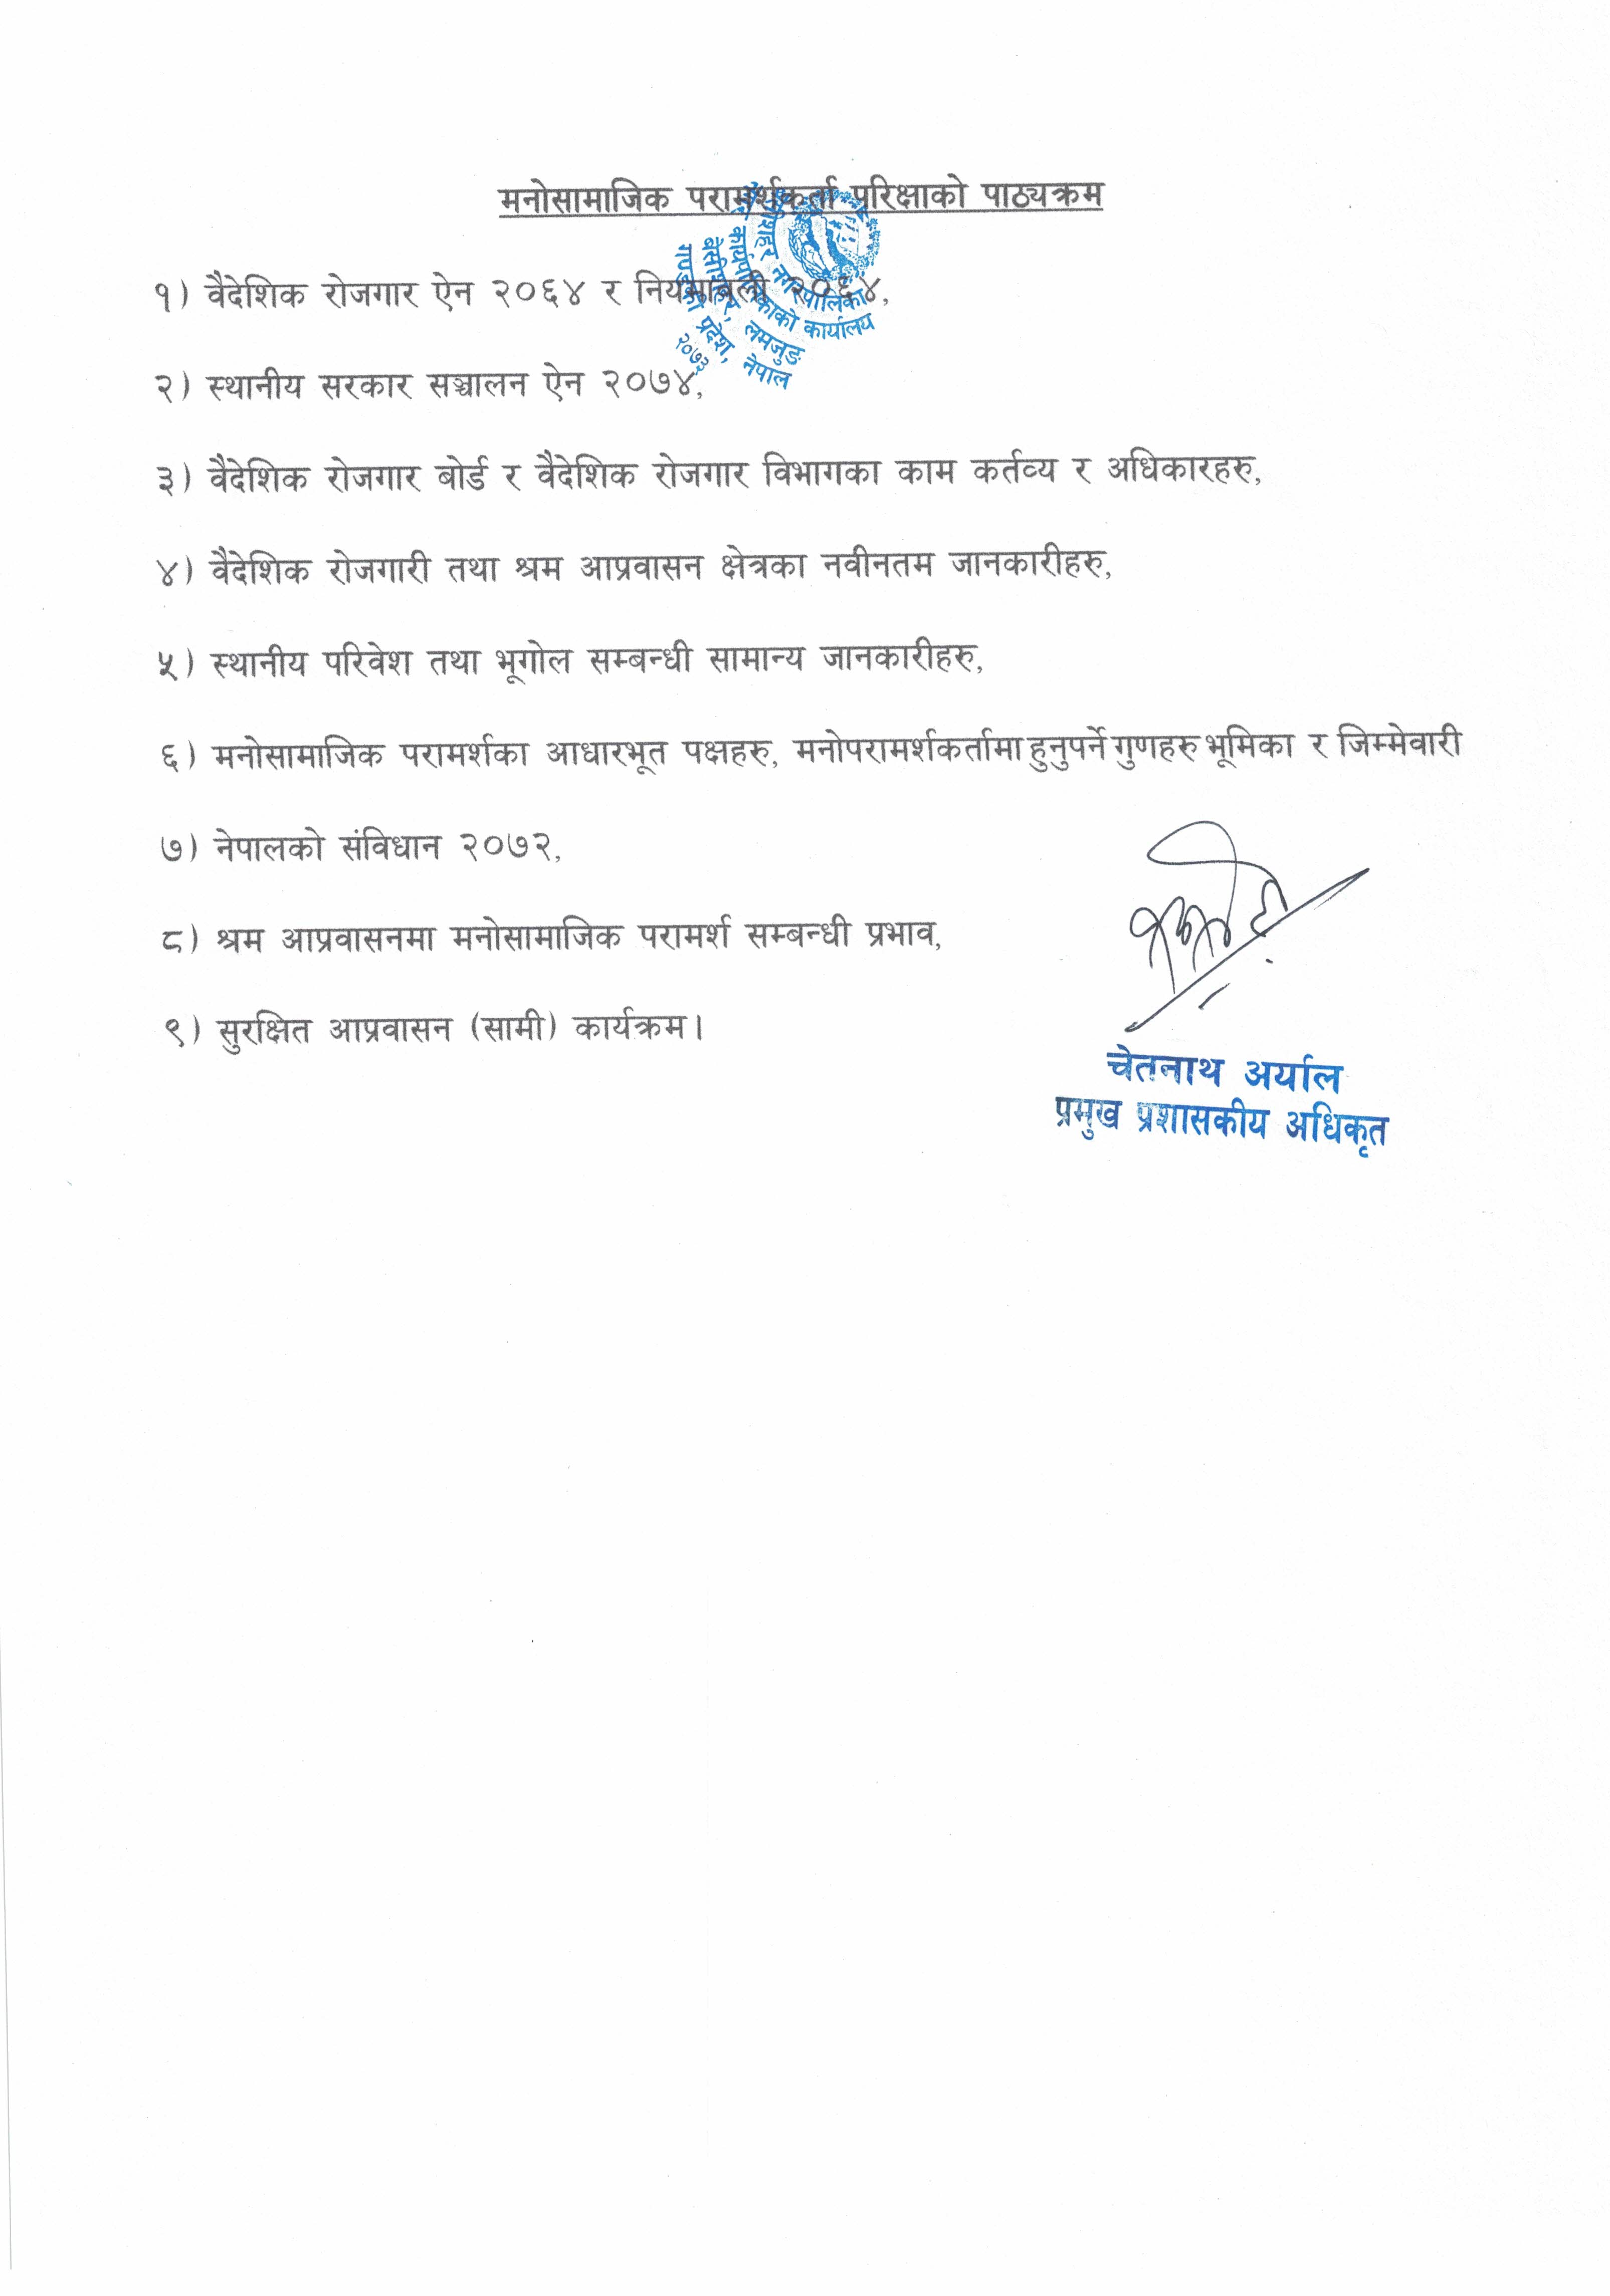 मनोसामाजिक परामर्शकर्ता परिक्षाको पाठ्यक्रम
नगरपालिका
कार्यपालिकाको कार्यालय
बेसीशहर, लमजुङ
गण्डकी प्रदेश, नेपाल
२०७३
१) वैदेशिक रोजगार ऐन २०६४ र नियमावली २०६४,
२) स्थानीय सरकार सञ्चालन ऐन २०७४,
३) वैदेशिक रोजगार बोर्ड र वैदेशिक रोजगार विभागका काम कर्तव्य र अधिकारहरु,
४) वैदेशिक रोजगारी तथा श्रम आप्रवासन क्षेत्रका नवीनतम जानकारीहरु,
५) स्थानीय परिवेश तथा भूगोल सम्बन्धी सामान्य जानकारीहरु,
६) मनोसामाजिक परामर्शका आधारभूत पक्षहरु, मनोपरामर्शकर्तामा हुनुपर्ने गुणहरु भूमिका र जिम्मेवारी
७) नेपालको संविधान २०७२,
८) श्रम आप्रवासनमा मनोसामाजिक परामर्श सम्बन्धी प्रभाव,
९) सुरक्षित आप्रवासन (सामी) कार्यक्रम।
चेतनाथ अर्याल
प्रमुख प्रशासकीय अधिकृत